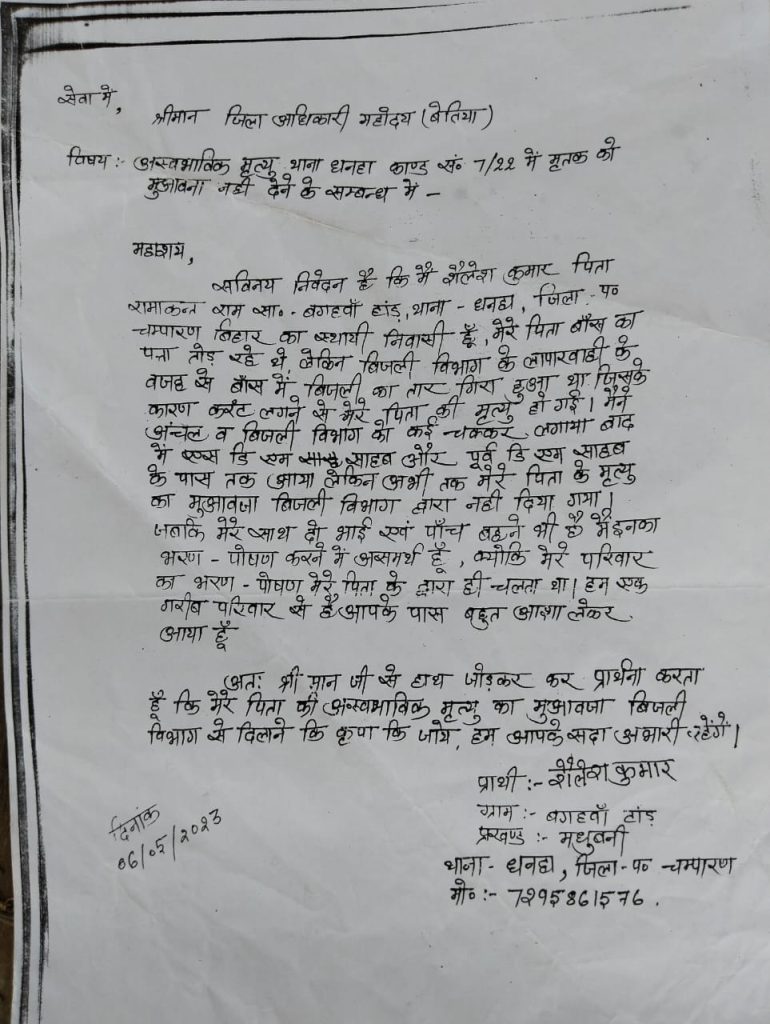 सेवा में,
श्रीमान जिला अधिकारी महोदय (बेतिया)
विषय :- अस्वभाविक मृत्यु थाना धनहा काण्ड सं० 7/22 में मृतक को
मुआवना नही देने के सम्बन्ध में -
महाशय,
सविनय निवेदन है कि मैं शैलेश कुमार पिता
रामाकन्त राम सा०- बगहवाँ टांड़, थाना - धनहा, जिला - प०
चम्पारण बिहार का स्थायी निवासी हूँ, मेरे पिता बाँस का
पत्ता तोड़ रहे थे, लेकिन बिजली विभाग के लापारवाही के
वजह से बाँस में बिजली का तार गिरा हुआ था जिसके
कारण करंट लगने से मेरे पिता की मृत्यु हो गई। मैने
अंचल व बिजली विभाग को कई चक्कर लगाया बाद
में एस डि एम साहब और पूर्व डि एम साहब
के पास तक आया लेकिन अभी तक मेरे पिता के मृत्यु
का मुआवजा बिजली विभाग द्वारा नही दिया गया।
जबकि मेरे साथ दो भाई एवं पाँच बहने भी है मैं इनका
भरण - पोषण करने में असमर्थ हूँ, क्योंकि मेरे परिवार
का भरण - पोषण मेरे पिता के द्वारा ही चलता था। हम एक
गरीब परिवार से है आपके पास बहुत आशा लेकर
आया हूँ
अतः श्री मान जी से हाथ जोड़कर कर प्रार्थना करता
हूँ कि मेरे पिता की अस्वभाविक मृत्यु का मुआवजा बिजली
विभाग से दिलाने कि कृपा कि जाये, हम आपके सदा अभारी रहेंगे।
प्रार्थी :- शैलेश कुमार
ग्राम :- बगहवाँ टांड़
प्रखण्ड :- मधुबनी
थाना - धनहा, जिला - प० चम्पारण
मो० :- 7295861576.
दिनांक
06/05/2023